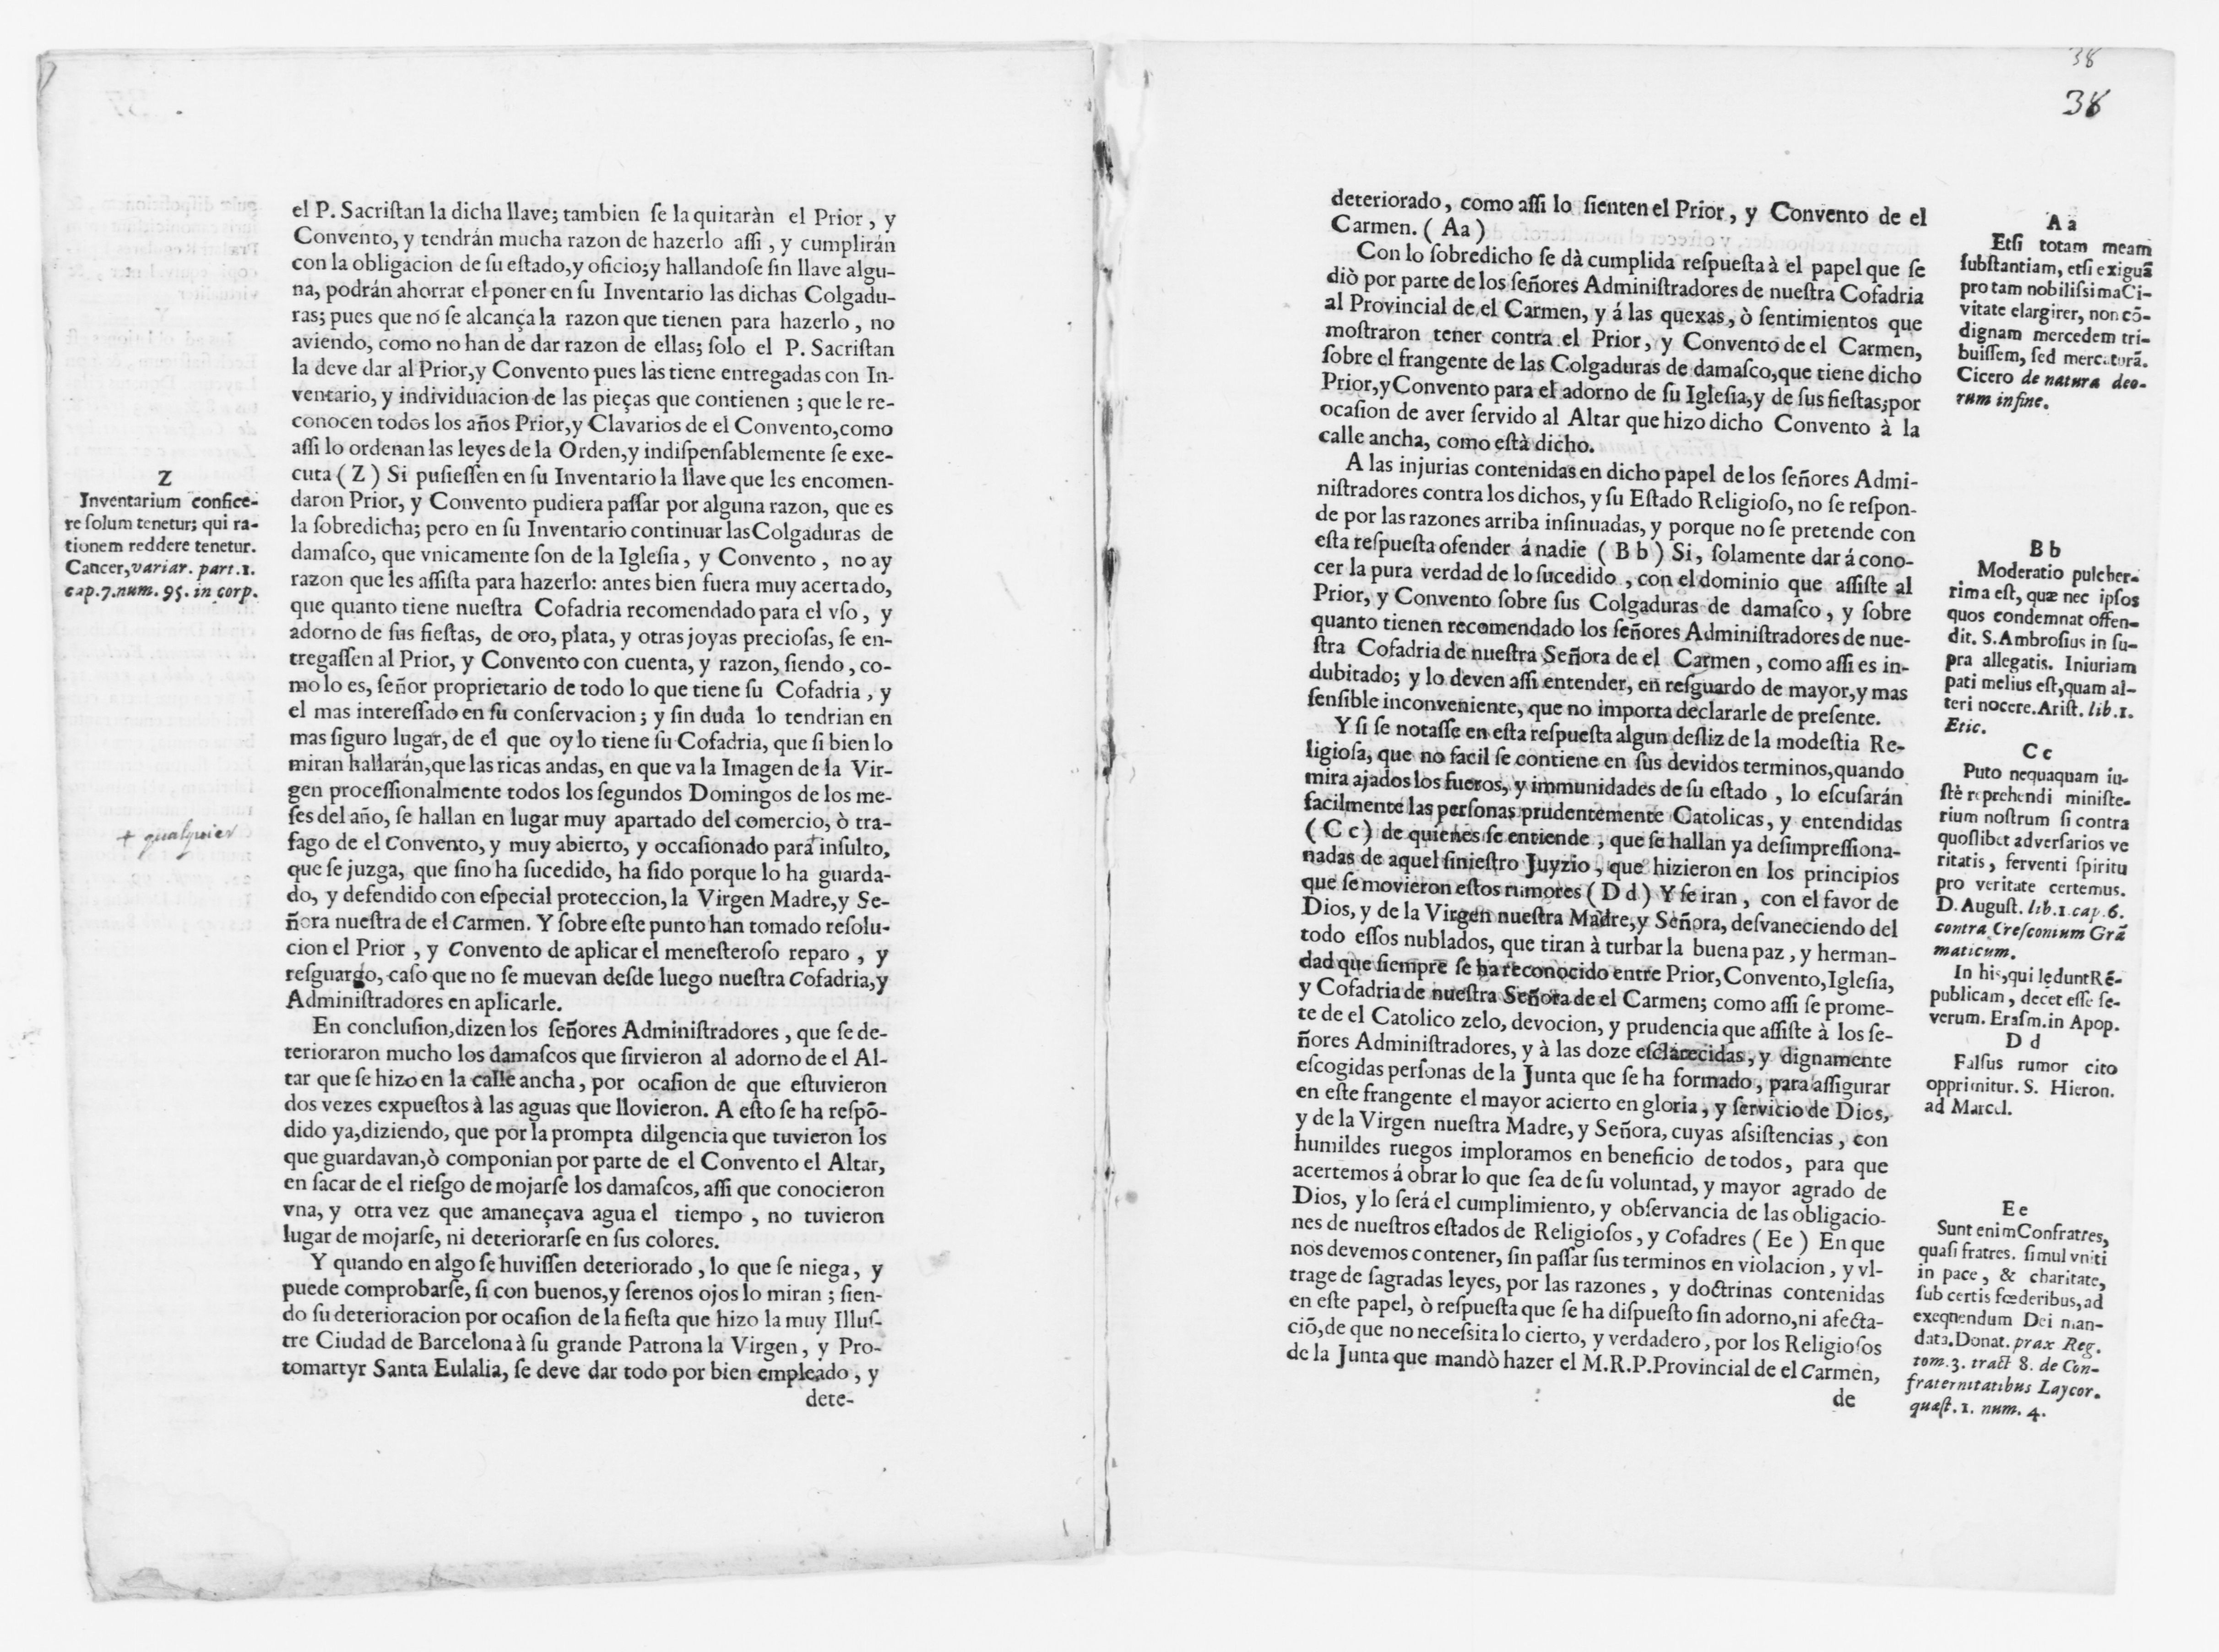 el P. Sacriſtan la dicha llave; tambien ſe la quitaràn el Prior, y
Convento, y tendrán mucha razon de hazerlo aſſi, y cumplirán
con la obligacion de ſu eſtado, y oficio; y hallandoſe ſin llave algu-
na, podrán ahorrar el poner en ſu Inventario las dichas Colgadu-
ras; pues que no ſe alcança la razon que tienen para hazerlo, no
aviendo, como no han de dar razon de ellas; ſolo el P. Sacriſtan
la deve dar al Prior, y Convento pues las tiene entregadas con In-
ventario, y individuacion de las pieças que contienen; que le re-
conocen todos los años Prior, y Clavarios de el Convento, como
aſſi lo ordenan las leyes de la Orden, y indiſpenſablemente ſe exe-
cuta (Z) Si puſieſſen en ſu Inventario la llave que les encomen-
daron Prior, y Convento pudiera paſſar por alguna razon, que es
la ſobredicha; pero en ſu Inventario continuar las Colgaduras de
damaſco, que vnicamente ſon de la Igleſia, y Convento, no ay
razon que les aſſiſta para hazerlo: antes bien fuera muy acertado,
que quanto tiene nueſtra Cofadria recomendado para el vſo, y
adorno de ſus fieſtas, de oro, plata, y otras joyas precioſas, ſe en-
tregaſſen al Prior, y Convento con cuenta, y razon, ſiendo, co-
mo lo es, ſeñor proprietario de todo lo que tiene ſu Cofadria, y
el mas intereſſado en ſu conſervacion; y ſin duda lo tendrian en
mas ſiguro lugar, de el que oy lo tiene ſu Cofadria, que ſi bien lo
miran hallarán, que las ricas andas, en que va la Imagen de la Vir-
gen proceſſionalmente todos los ſegundos Domingos de los me-
ſes del año, ſe hallan en lugar muy apartado del comercio, ò tra-
fago de el Convento, y muy abierto, y occaſionado para + inſulto,
que ſe juzga, que ſino ha ſucedido, ha ſido porque lo ha guarda-
do, y defendido con eſpecial proteccion, la Virgen Madre, y Se-
ñora nueſtra de el Carmen. Y ſobre eſte punto han tomado reſolu-
cion el Prior, y Convento de aplicar el meneſteroſo reparo, y
reſguargo, caſo que no ſe muevan deſde luego nueſtra Cofadria, y
Adminiſtradores en aplicarle.
En concluſion, dizen los ſeñores Adminiſtradores, que ſe de-
terioraron mucho los damaſcos que ſirvieron al adorno de el Al-
tar que ſe hizo en la calle ancha, por ocaſion de que eſtuvieron
dos vezes expueſtos à las aguas que llovieron. A eſto ſe ha reſpō-
dido ya, diziendo, que por la prompta dilgencia que tuvieron los
que guardavan, ò componian por parte de el Convento el Altar,
en ſacar de el rieſgo de mojarſe los damaſcos, aſſi que conocieron
vna, y otra vez que amaneçava agua el tiempo, no tuvieron
lugar de mojarſe, ni deteriorarſe en ſus colores.
Y quando en algo ſe huviſſen deteriorado, lo que ſe niega, y
puede comprobarſe, ſi con buenos, y ſerenos ojos lo miran; ſien-
do ſu deterioracion por ocaſion de la fieſta que hizo la muy Illuſ-
tre Ciudad de Barcelona à ſu grande Patrona la Virgen, y Pro-
tomartyr Santa Eulalia, ſe deve dar todo por bien empleado, y
dete-
Z
Inventarium confice-
re ſolum tenetur; qui ra-
tionem reddere tenetur.
Cancer, variar. part. 1.
cap. 7. num. 95. in corp.
+ qualquier
38
38
deteriorado, como aſſi lo ſienten el Prior, y Convento de el
Carmen. (Aa)
Con lo ſobredicho ſe dà cumplida reſpueſta à el papel que ſe
diò por parte de los ſeñores Adminiſtradores de nueſtra Cofadria
al Provincial de el Carmen, y á las quexas, ò ſentimientos que
moſtraron tener contra el Prior, y Convento de el Carmen,
ſobre el frangente de las Colgaduras de damaſco, que tiene dicho
Prior, y Convento para el adorno de ſu Igleſia, y de ſus fieſtas; por
ocaſion de aver ſervido al Altar que hizo dicho Convento à la
calle ancha, como eſtà dicho.
A las injurias contenidas en dicho papel de los ſeñores Admi-
niſtradores contra los dichos, y ſu Eſtado Religioſo, no ſe reſpon-
de por las razones arriba inſinuadas, y porque no ſe pretende con
eſta reſpueſta ofender á nadie (Bb) Si, ſolamente dar á cono-
cer la pura verdad de lo ſucedido, con el dominio que aſſiſte al
Prior, y Convento ſobre ſus Colgaduras de damaſco, y ſobre
quanto tienen recomendado los ſeñores Adminiſtradores de nue-
ſtra Cofadria de nueſtra Señora de el Carmen, como aſſi es in-
dubitado; y lo deven aſſi entender, en reſguardo de mayor, y mas
ſenſible inconveniente, que no importa declararle de preſente.
Y ſi ſe notaſſe en eſta reſpueſta algun deſliz de la modeſtia Re-
ligioſa, que no facil ſe contiene en ſus devidos terminos, quando
mira ajados los fueros, y immunidades de ſu eſtado, lo eſcuſarán
facilmente las perſonas prudentemente Catolicas, y entendidas
(Cc) de quienes ſe entiende, que ſe hallan ya deſimpreſſiona-
nadas de aquel ſinieſtro Juyzio, que hizieron en los principios
que ſe movieron eſtos rumores (Dd) Y ſe iran, con el favor de
Dios, y de la Virgen nueſtra Madre, y Señora, deſvaneciendo del
todo eſſos nublados, que tiran à turbar la buena paz, y herman-
dad que ſiempre ſe ha reconocido entre Prior, Convento, Igleſia,
y Cofadria de nueſtra Señora de el Carmen; como aſſi ſe prome-
te de el Catolico zelo, devocion, y prudencia que aſſiſte à los ſe-
ñores Adminiſtradores, y à las doze eſclarecidas, y dignamente
eſcogidas perſonas de la Junta que ſe ha formado, para aſſigurar
en eſte frangente el mayor acierto en gloria, y ſervicio de Dios,
y de la Virgen nueſtra Madre, y Señora, cuyas aſsiſtencias, con
humildes ruegos imploramos en beneficio de todos, para que
acertemos á obrar lo que ſea de ſu voluntad, y mayor agrado de
Dios, y lo ſerá el cumplimiento, y obſervancia de las obligacio-
nes de nueſtros eſtados de Religioſos, y Cofadres (Ee) En que
nos devemos contener, ſin paſſar ſus terminos en violacion, y vl-
trage de ſagradas leyes, por las razones, y doctrinas contenidas
en eſte papel, ò reſpueſta que ſe ha diſpueſto ſin adorno, ni afecta-
ciō, de que no neceſsita lo cierto, y verdadero, por los Religioſos
de la Junta que mandò hazer el M.R.P. Provincial de el Carmen,
de
Aa
Etſi totam meam
ſubſtantiam, etſi exiguā
pro tam nobiliſsima Ci-
vitate elargirer, non cō-
dignam mercedem tri-
buiſſem, ſed mercaturā.
Cicero de natura deo-
rum in fine.
Bb
Moderatio pulcher-
rima eſt, quæ nec ipſos
quos condemnat offen-
dit. S. Ambroſius in ſu-
pra allegatis. Iniuriam
pati melius eſt, quam al-
teri nocere. Ariſt. lib. 1.
Etic.
Cc
Puto nequaquam iu-
ſtè reprehendi miniſte-
rium noſtrum ſi contra
quoſlibet adverſarios ve
ritatis, ferventi ſpiritu
pro veritate certemus.
D. Auguſt. lib. 1. cap. 6.
contra Creſconium Grā
maticum.
In his, qui lędunt Rē-
publicam, decet eſſe ſe-
verum. Eraſm. in Apop.
Dd
Falſus rumor cito
opprimitur. S. Hieron.
ad Marcel.
Ee
Sunt enim Confratres,
quaſi fratres. ſimul vniti
in pace, & charitate,
ſub certis fœderibus, ad
exeqnendum Dei man-
data. Donat. prax Reg.
tom. 3. tract 8. de Con-
fraternitatibus Laycor.
quæſt. 1. num. 4.